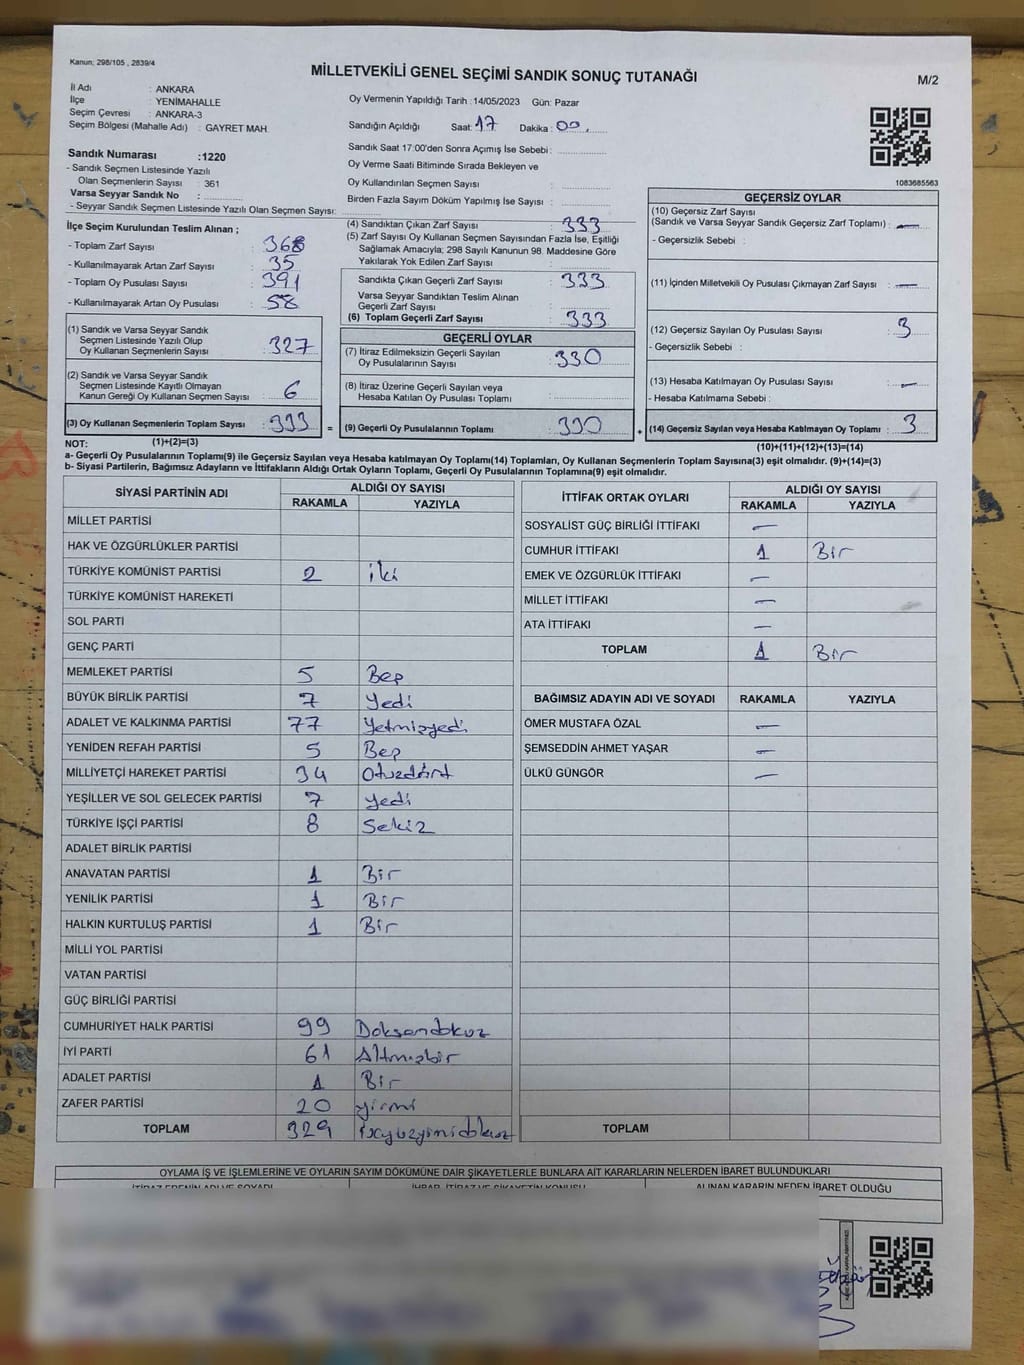 Kanun; 298/105 , 2839/4
MİLLETVEKİLİ GENEL SEÇİMİ SANDIK SONUÇ TUTANAĞI
M/2
İl Adı : ANKARA
İlçe : YENİMAHALLE
Seçim Çevresi : ANKARA-3
Seçim Bölgesi (Mahalle Adı) : GAYRET MAH.
Oy Vermenin Yapıldığı Tarih :14/05/2023 Gün: Pazar
Sandığın Açıldığı Saat: 17 Dakika: 00
Sandık Saat 17:00'den Sonra Açımış İse Sebebi :
Oy Verme Saati Bitiminde Sırada Bekleyen ve
Oy Kullandırılan Seçmen Sayısı :
Birden Fazla Sayım Döküm Yapılmış İse Sayısı :
1083685563
Sandık Numarası :1220
- Sandık Seçmen Listesinde Yazılı
Olan Seçmenlerin Sayısı : 361
Varsa Seyyar Sandık No :
- Seyyar Sandık Seçmen Listesinde Yazılı Olan Seçmen Sayısı:
İlçe Seçim Kurulundan Teslim Alınan ;
- Toplam Zarf Sayısı : 368
- Kullanılmayarak Artan Zarf Sayısı : 35
- Toplam Oy Pusulası Sayısı : 391
- Kullanılmayarak Artan Oy Pusulası : 58
(1) Sandık ve Varsa Seyyar Sandık
Seçmen Listesinde Yazılı Olup
Oy Kullanan Seçmenlerin Sayısı : 327
(2) Sandık ve Varsa Seyyar Sandık
Seçmen Listesinde Kayıtlı Olmayan
Kanun Gereği Oy Kullanan Seçmen Sayısı : 6
(3) Oy Kullanan Seçmenlerin Toplam Sayısı : 333 =
(4) Sandıktan Çıkan Zarf Sayısı : 333
(5) Zarf Sayısı Oy Kullanan Seçmen Sayısından Fazla İse, Eşitliği
Sağlamak Amacıyla; 298 Sayılı Kanunun 98. Maddesine Göre
Yakılarak Yok Edilen Zarf Sayısı :
Sandıkta Çıkan Geçerli Zarf Sayısı : 333
Varsa Seyyar Sandıktan Teslim Alınan
Geçerli Zarf Sayısı :
(6) Toplam Geçerli Zarf Sayısı : 333
GEÇERLİ OYLAR
(7) İtiraz Edilmeksizin Geçerli Sayılan
Oy Pusulalarının Sayısı : 330
(8) İtiraz Üzerine Geçerli Sayılan veya
Hesaba Katılan Oy Pusulası Toplamı :
(9) Geçerli Oy Pusulalarının Toplamı : 330 +
GEÇERSİZ OYLAR
(10) Geçersiz Zarf Sayısı
(Sandık ve Varsa Seyyar Sandık Geçersiz Zarf Toplamı) : —
- Geçersizlik Sebebi :
(11) İçinden Milletvekili Oy Pusulası Çıkmayan Zarf Sayısı : —
(12) Geçersiz Sayılan Oy Pusulası Sayısı : 3
- Geçersizlik Sebebi :
(13) Hesaba Katılmayan Oy Pusulası Sayısı : —
- Hesaba Katılmama Sebebi :
(14) Geçersiz Sayılan veya Hesaba Katılmayan Oy Toplamı : 3
NOT: (1)+(2)=(3)
(10)+(11)+(12)+(13)=(14)
a- Geçerli Oy Pusulalarının Toplamı(9) ile Geçersiz Sayılan veya Hesaba katılmayan Oy Toplamı(14) Toplamları, Oy Kullanan Seçmenlerin Toplam Sayısına(3) eşit olmalıdır. (9)+(14)=(3)
b- Siyasi Partilerin, Bağımsız Adayların ve İttifakların Aldığı Ortak Oyların Toplamı, Geçerli Oy Pusulalarının Toplamına(9) eşit olmalıdır.
SİYASİ PARTİNİN ADI ALDIĞI OY SAYISI
RAKAMLA YAZIYLA
MİLLET PARTİSİ
HAK VE ÖZGÜRLÜKLER PARTİSİ
TÜRKİYE KOMÜNİST PARTİSİ 2 iki
TÜRKİYE KOMÜNİST HAREKETİ
SOL PARTİ
GENÇ PARTİ
MEMLEKET PARTİSİ 5 Beş
BÜYÜK BİRLİK PARTİSİ 7 Yedi
ADALET VE KALKINMA PARTİSİ 77 Yetmişyedi
YENİDEN REFAH PARTİSİ 5 Beş
MİLLİYETÇİ HAREKET PARTİSİ 34 Otuzdört
YEŞİLLER VE SOL GELECEK PARTİSİ 7 Yedi
TÜRKİYE İŞÇİ PARTİSİ 8 Sekiz
ADALET BİRLİK PARTİSİ
ANAVATAN PARTİSİ 1 Bir
YENİLİK PARTİSİ 1 Bir
HALKIN KURTULUŞ PARTİSİ 1 Bir
MİLLİ YOL PARTİSİ
VATAN PARTİSİ
GÜÇ BİRLİĞİ PARTİSİ
CUMHURİYET HALK PARTİSİ 99 Doksandokuz
İYİ PARTİ 61 Altmışbir
ADALET PARTİSİ 1 Bir
ZAFER PARTİSİ 20 yirmi
TOPLAM 329 üçyüzyirmidokuz
İTTİFAK ORTAK OYLARI ALDIĞI OY SAYISI
RAKAMLA YAZIYLA
SOSYALİST GÜÇ BİRLİĞİ İTTİFAKI —
CUMHUR İTTİFAKI 1 Bir
EMEK VE ÖZGÜRLÜK İTTİFAKI —
MİLLET İTTİFAKI —
ATA İTTİFAKI —
TOPLAM 1 Bir
BAĞIMSIZ ADAYIN ADI VE SOYADI RAKAMLA YAZIYLA
ÖMER MUSTAFA ÖZAL —
ŞEMSEDDİN AHMET YAŞAR —
ÜLKÜ GÜNGÖR —
TOPLAM
OYLAMA İŞ VE İŞLEMLERİNE VE OYLARIN SAYIM DÖKÜMÜNE DAİR ŞİKAYETLERLE BUNLARA AİT KARARLARIN NELERDEN İBARET BULUNDUKLARI
İTİRAZ EDENİN ADI VE SOYADI İHBAR, İTİRAZ VE ŞİKAYETİN KONUSU ALINAN KARARIN NEDEN İBARET OLDUĞU